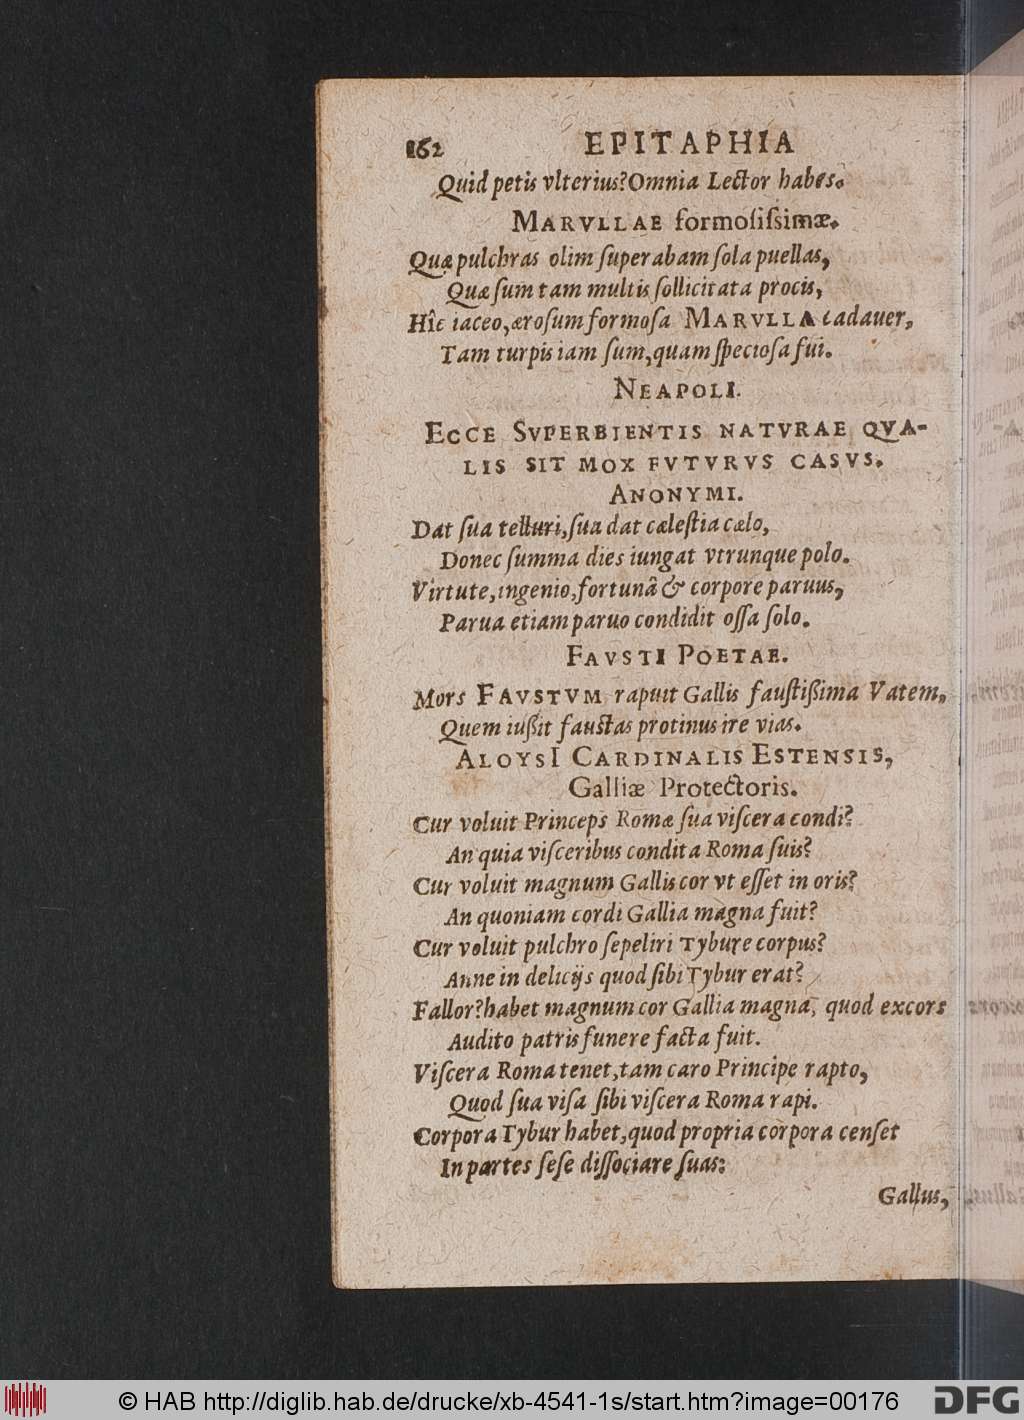 162 EPITAPHIA
Quid petis vlterius? Omnia Lector habes.
MARVLLAE formosiſsimæ.
Quæ pulchras olim ſuperabam ſola puellas,
Quæ ſum tam multis ſollicitata procis,
Hîc iaceo, ærosum formoſa MARVLLA cadauer,
Tam turpis iam ſum, quam ſpecioſa fui.
NEAPOLI.
ECCE SVPERBIENTIS NATVRAE QVA-
LIS SIT MOX FVTVRVS CASVS.
ANONYMI.
Dat ſua telluri, ſua dat cæleſtia cælo,
Donec ſumma dies iungat vtrunque polo.
Virtute, ingenio, fortunâ & corpore paruus,
Parua etiam paruo condidit oſſa ſolo.
FAVSTI POETAE.
Mors FAVSTVM rapuit Gallis fauſtißima Vatem,
Quem iußit fauſtas protinus ire vias.
ALOYSI CARDINALIS ESTENSIS,
Galliæ Protectoris.
Cur voluit Princeps Romæ ſua viſcera condi?
An quia viſceribus condita Roma ſuis?
Cur voluit magnum Gallis cor vt eſſet in oris?
An quoniam cordi Gallia magna fuit?
Cur voluit pulchro ſepeliri Tybure corpus?
Anne in delicijs quod ſibi Tybur erat?
Fallor? habet magnum cor Gallia magna, quod excors
Audito patris funere facta fuit.
Viſcera Roma tenet, tam caro Principe rapto,
Quod ſua viſa ſibi viſcera Roma rapi.
Corpora Tybur habet, quod propria corpora cenſet
In partes ſeſe diſſociare ſuas:
Gallus,
© HAB http://diglib.hab.de/drucke/xb-4541-1s/start.htm?image=00176 DFG